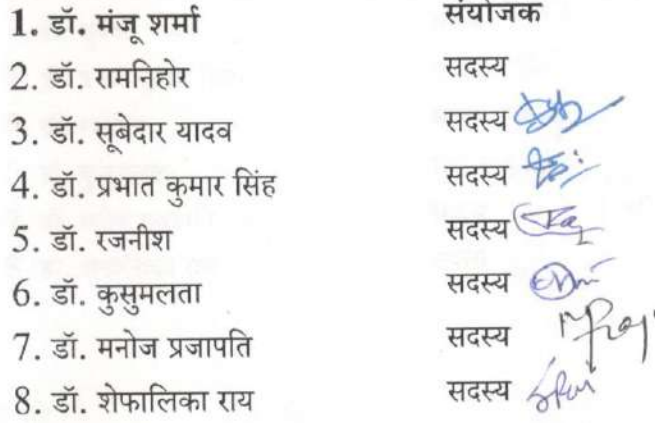 1. डॉ. मंजू शर्मा संयोजक
2. डॉ. रामनिहोर सदस्य
3. डॉ. सूबेदार यादव सदस्य
4. डॉ. प्रभात कुमार सिंह सदस्य
5. डॉ. रजनीश सदस्य
6. डॉ. कुसुमलता सदस्य
7. डॉ. मनोज प्रजापति सदस्य
8. डॉ. शेफालिका राय सदस्य